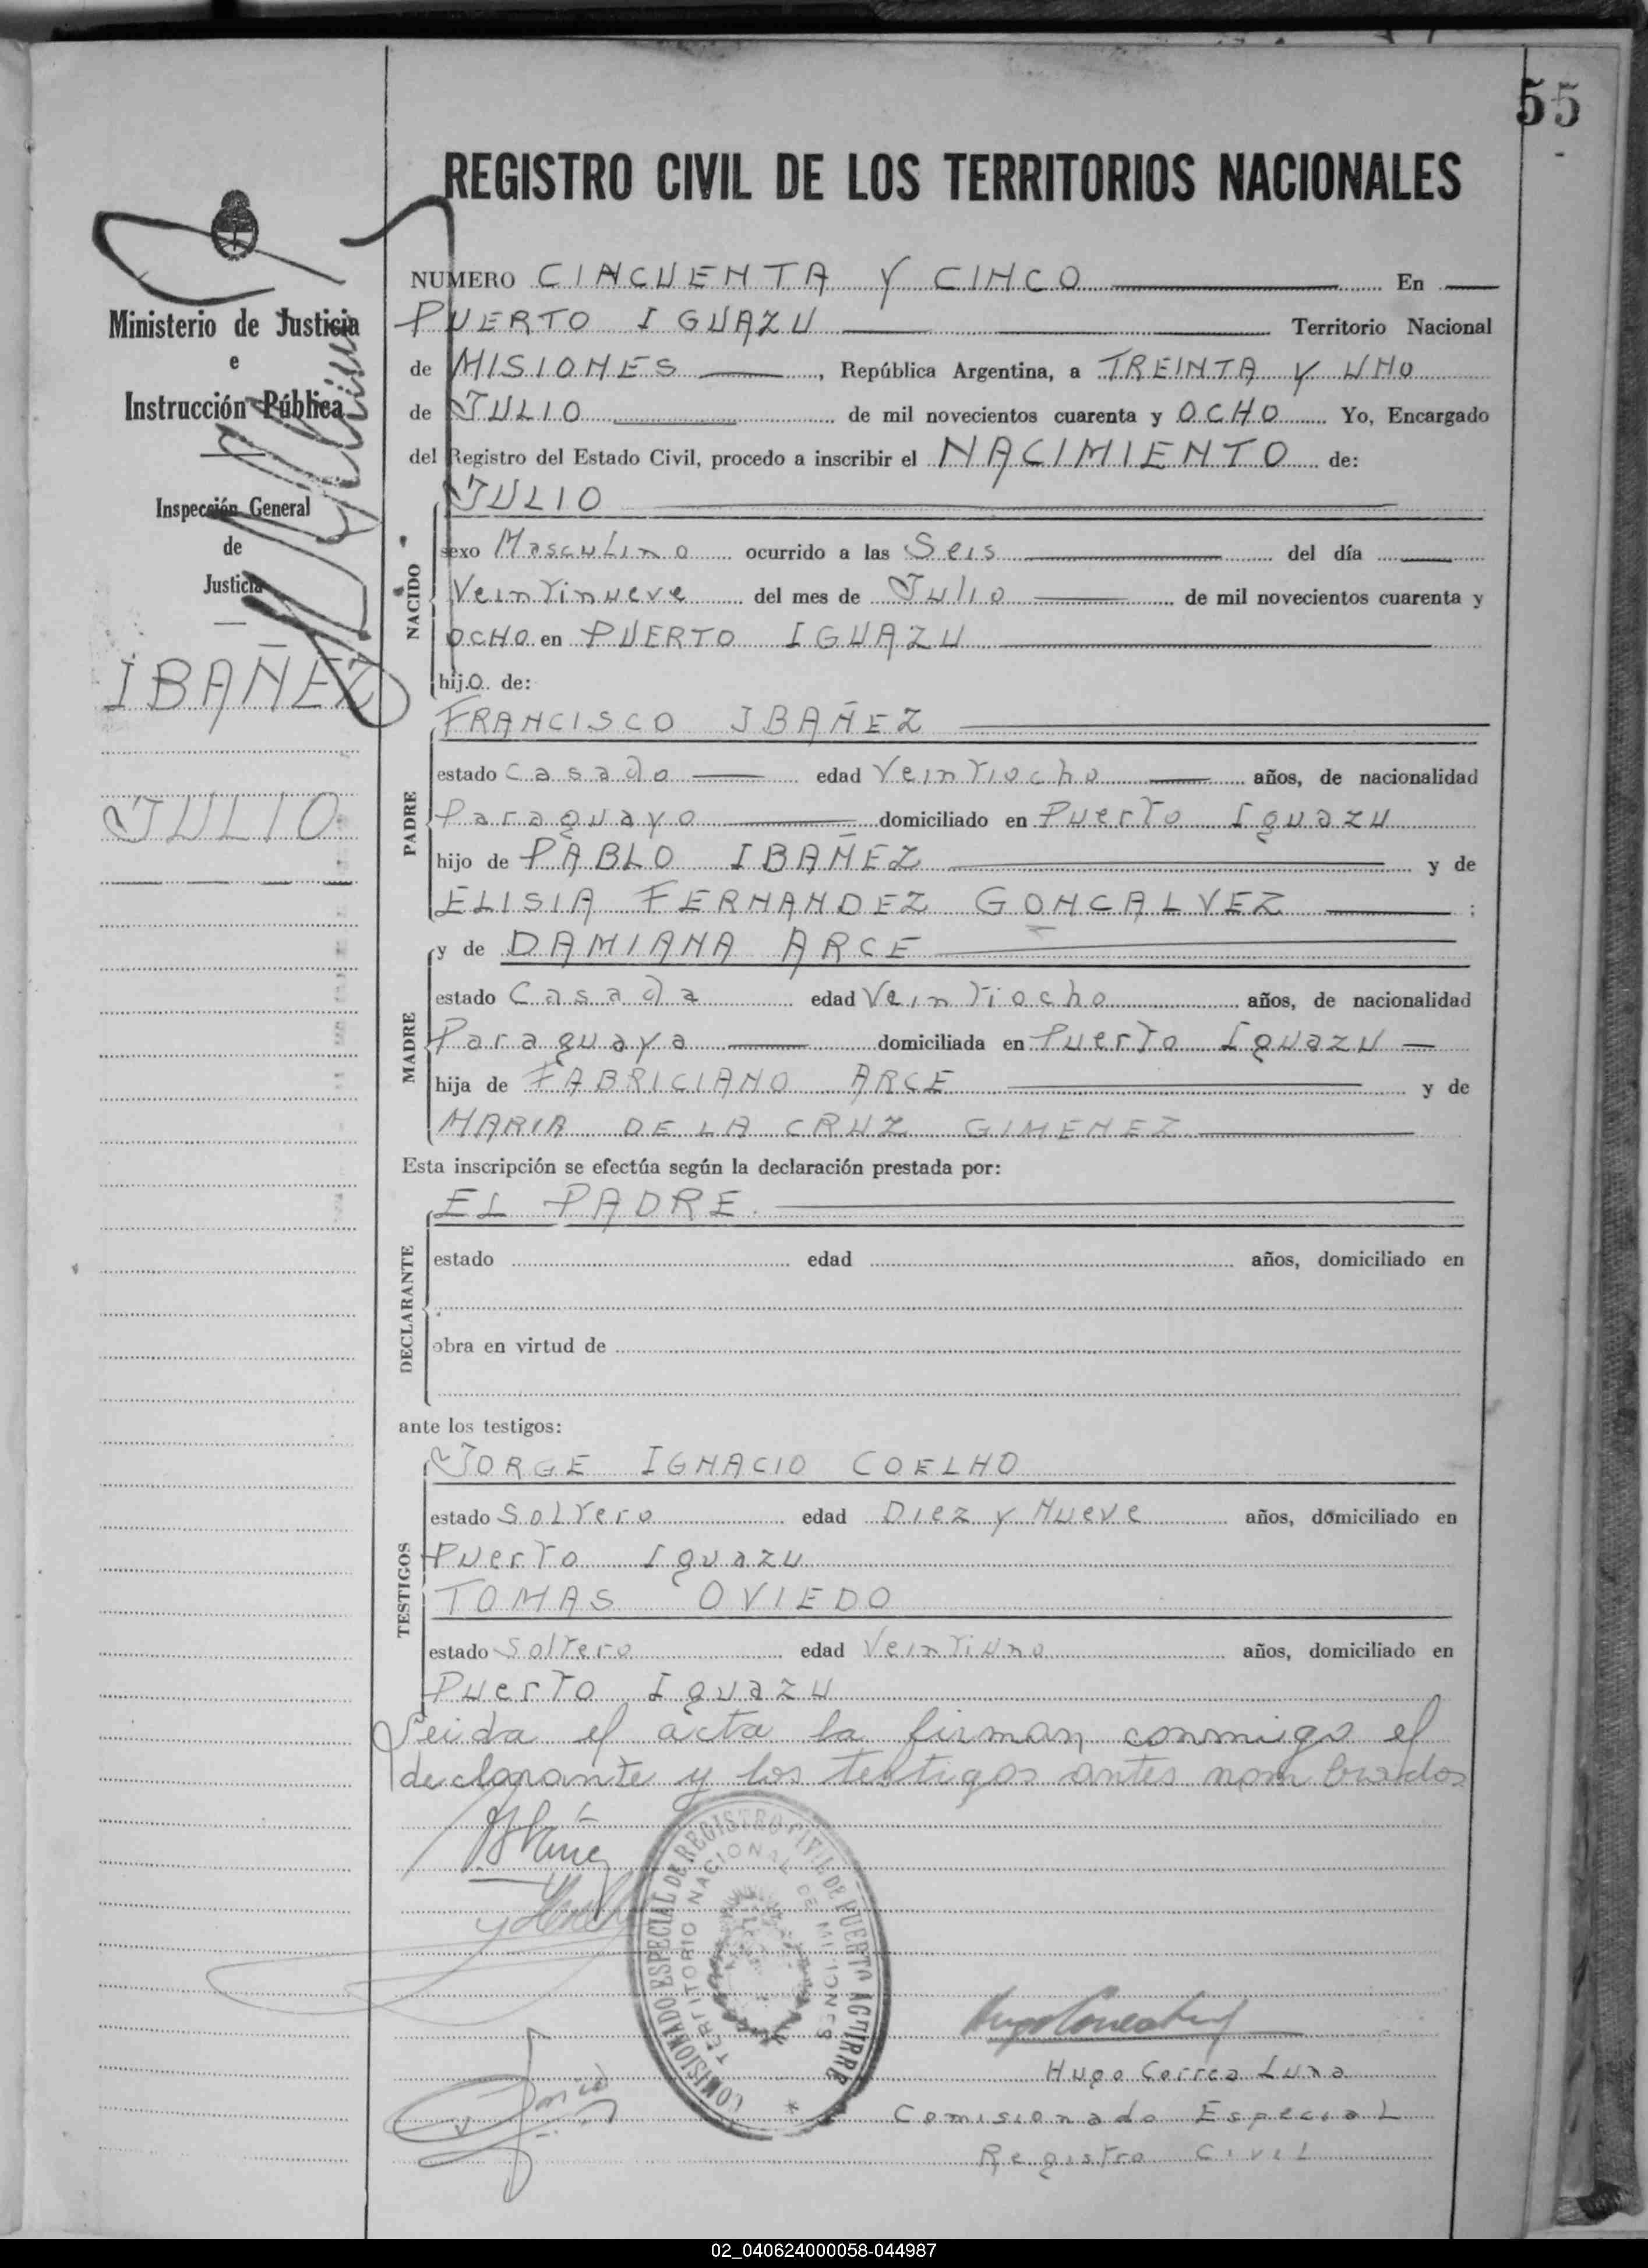 55
REGISTRO CIVIL DE LOS TERRITORIOS NACIONALES
Ministerio de Justicia
e
Instrucción Pública
Inspección General
de
Justicia
IBAÑEZ
JULIO
NUMERO CINCUENTA Y CINCO En
PUERTO IGUAZU Territorio Nacional
de MISIONES, República Argentina, a TREINTA Y UNO
de JULIO de mil novecientos cuarenta y OCHO Yo, Encargado
del Registro del Estado Civil, procedo a inscribir el NACIMIENTO de:
NACIDO
JULIO
sexo Masculino ocurrido a las Seis del día
Veintinueve del mes de Julio de mil novecientos cuarenta y
OCHO en PUERTO IGUAZU
hijo de:
PADRE
FRANCISCO IBAÑEZ
estado Casado edad Veintiocho años, de nacionalidad
Paraguayo domiciliado en Puerto Iguazu
hijo de PABLO IBAÑEZ y de
ELISIA FERNANDEZ GONCALVEZ ;
MADRE
y de DAMIANA ARCE
estado Casada edad Veintiocho años, de nacionalidad
Paraguaya domiciliada en Puerto Iguazu
hija de FABRICIANO ARCE y de
MARIA DE LA CRUZ GIMENEZ
Esta inscripción se efectúa según la declaración prestada por:
DECLARANTE
EL PADRE.
estado edad años, domiciliado en
obra en virtud de
ante los testigos:
TESTIGOS
JORGE IGNACIO COELHO
estado Soltero edad Diez y Nueve años, domiciliado en
Puerto Iguazu
TOMAS OVIEDO
estado Soltero edad Veintiuno años, domiciliado en
Puerto Iguazu
Leida el acta la firman conmigo el
declarante y los testigos antes nombrados
COMISIONADO ESPECIAL DE REGISTRO CIVIL DE PUERTO AGUIRRE
TERRITORIO NACIONAL DE MISIONES
Hugo Correa Luna
Comisionado Especial
Registro Civil
02_040624000058-044987